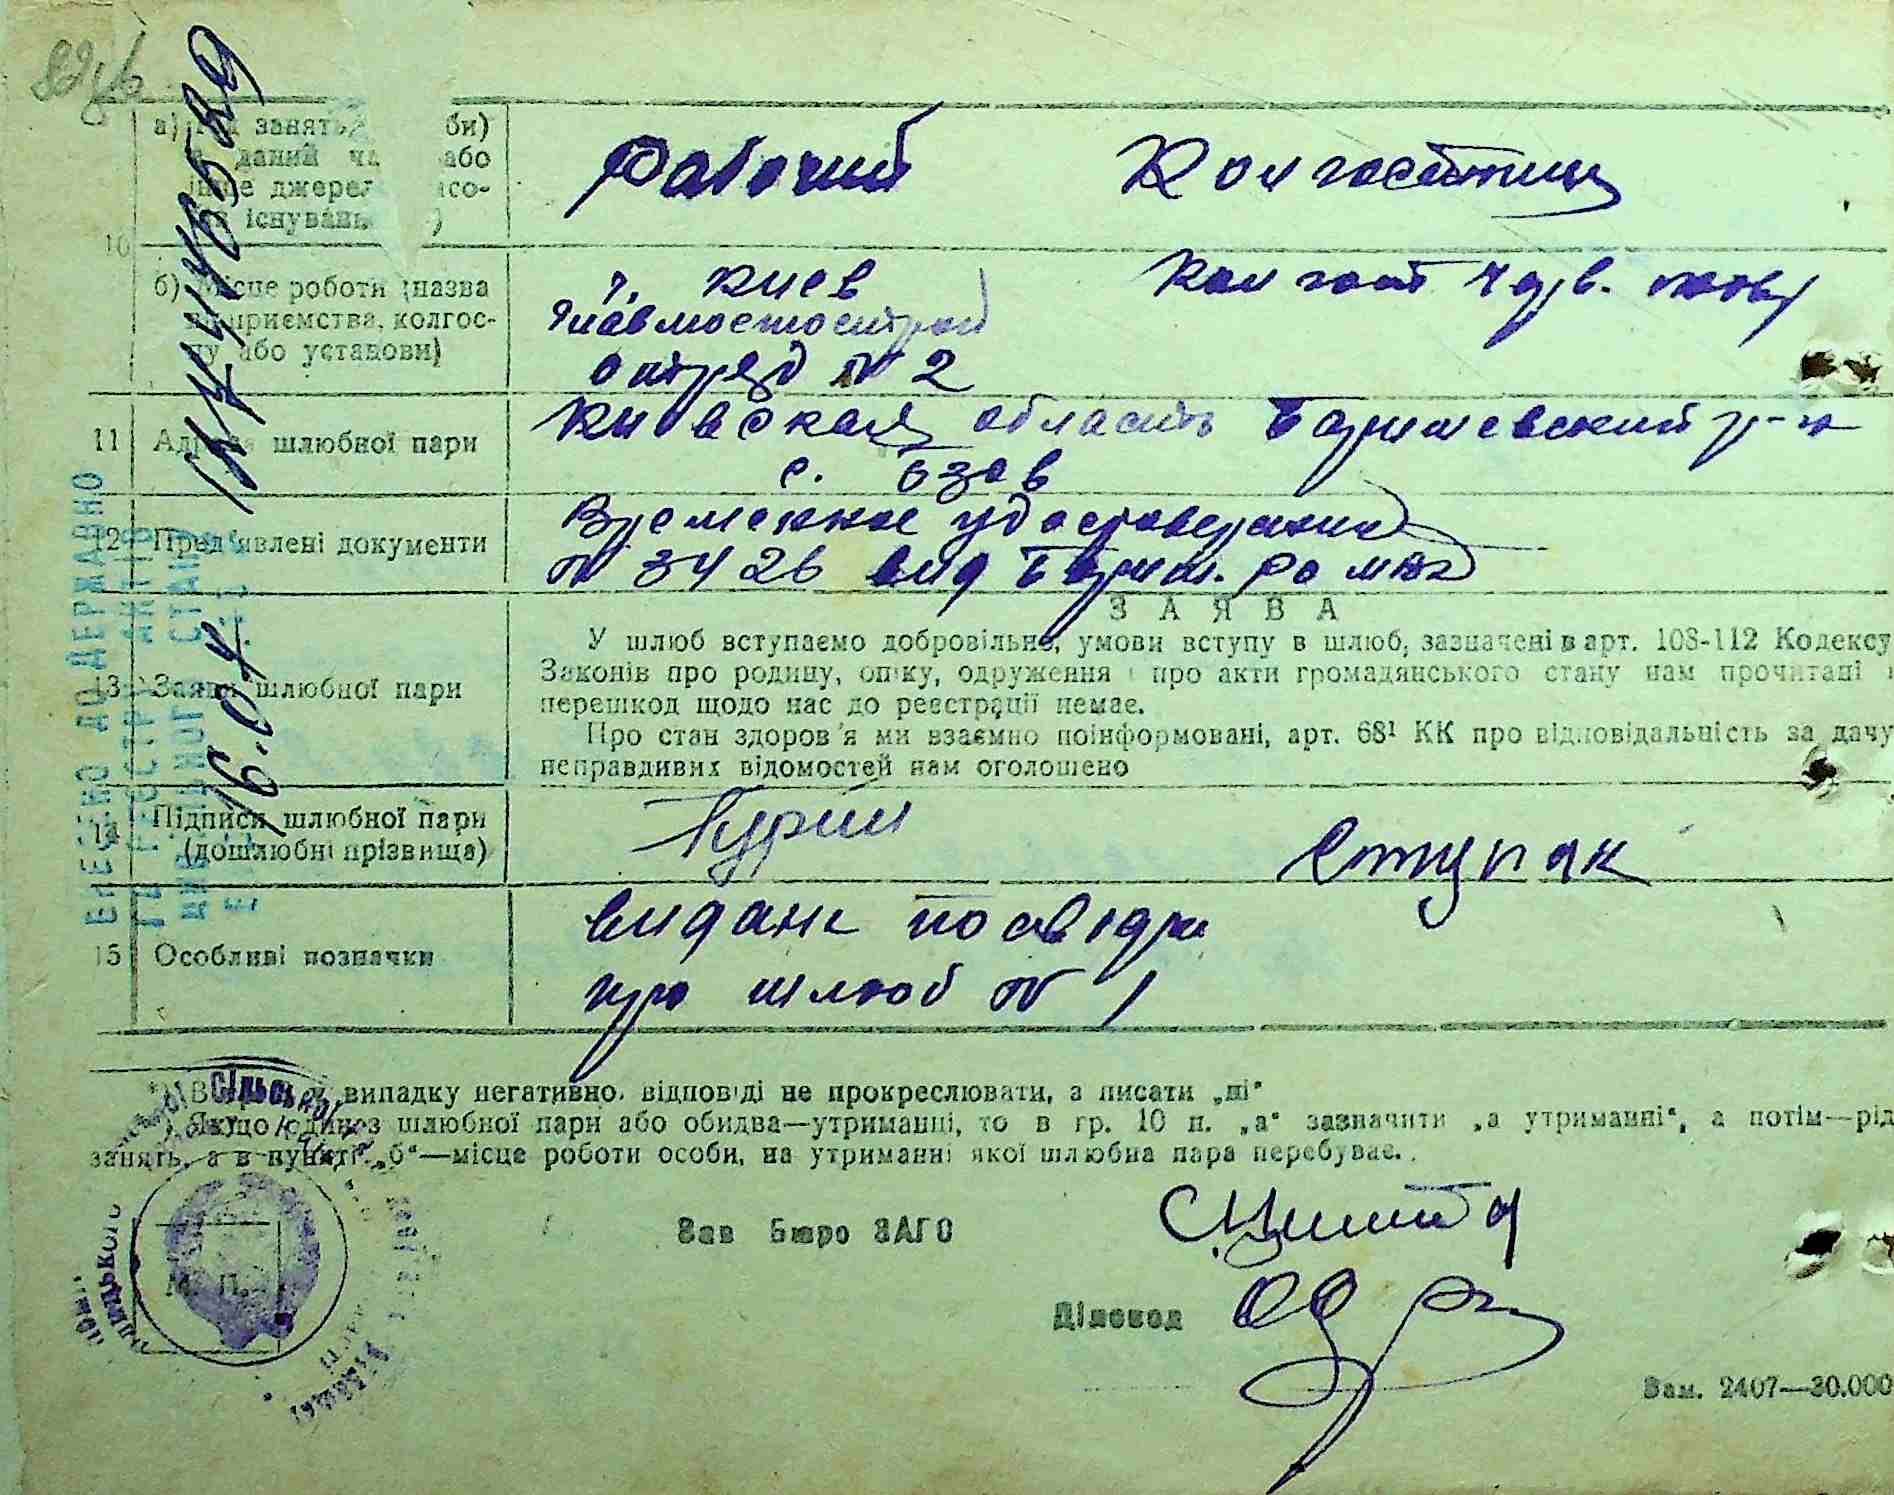 а) занять би)
даний або
джерел
існуван
Рабочий
10
б) Місце роботи (назва
підприємства, колгос-
пу або установи)
г. Киев
Главмостострой
отряд № 2
11 Адреса шлюбної пари
Киевская область Баришевский р-н
с.
12 Пред'явлені документи
Временное удостоверение
№ 3426 вид Бариш. РО
13 Заява шлюбної пари
ЗАЯВА
У шлюб вступаємо добровільно, умови вступу в шлюб, зазначені в арт. 108-112 Кодексу
Законів про родину, опіку, одруження і про акти громадянського стану нам прочитані і
перешкод щодо нас до реєстрації немає.
Про стан здоров'я ми взаємно поінформовані, арт. 68¹ КК про відповідальність за дачу
неправдивих відомостей нам оголошено
14 Підписи шлюбної пари
(дошлюбні прізвища)
Ступак
15 Особливі позначки
видане посвідч
про шлюб № 1
випадку негативно. відповіді не прокреслювати, а писати „ні"
Якщо один з шлюбної пари або обидва—утриманці, то в гр. 10 п. „а" зазначити „а утриманні", а потім—рід
занять, а в пункті „б"—місце роботи особи, на утриманні якої шлюбна пара перебуває.
М. П.
Зав Бюро ЗАГС
Діловод
Зам. 2407—30.000
ВНЕСЕНО ДО ДЕРЖАВНО
ГО РЕЄСТРУ АКТІВ
ЦИВІЛЬНОГО СТАНУ
16.04